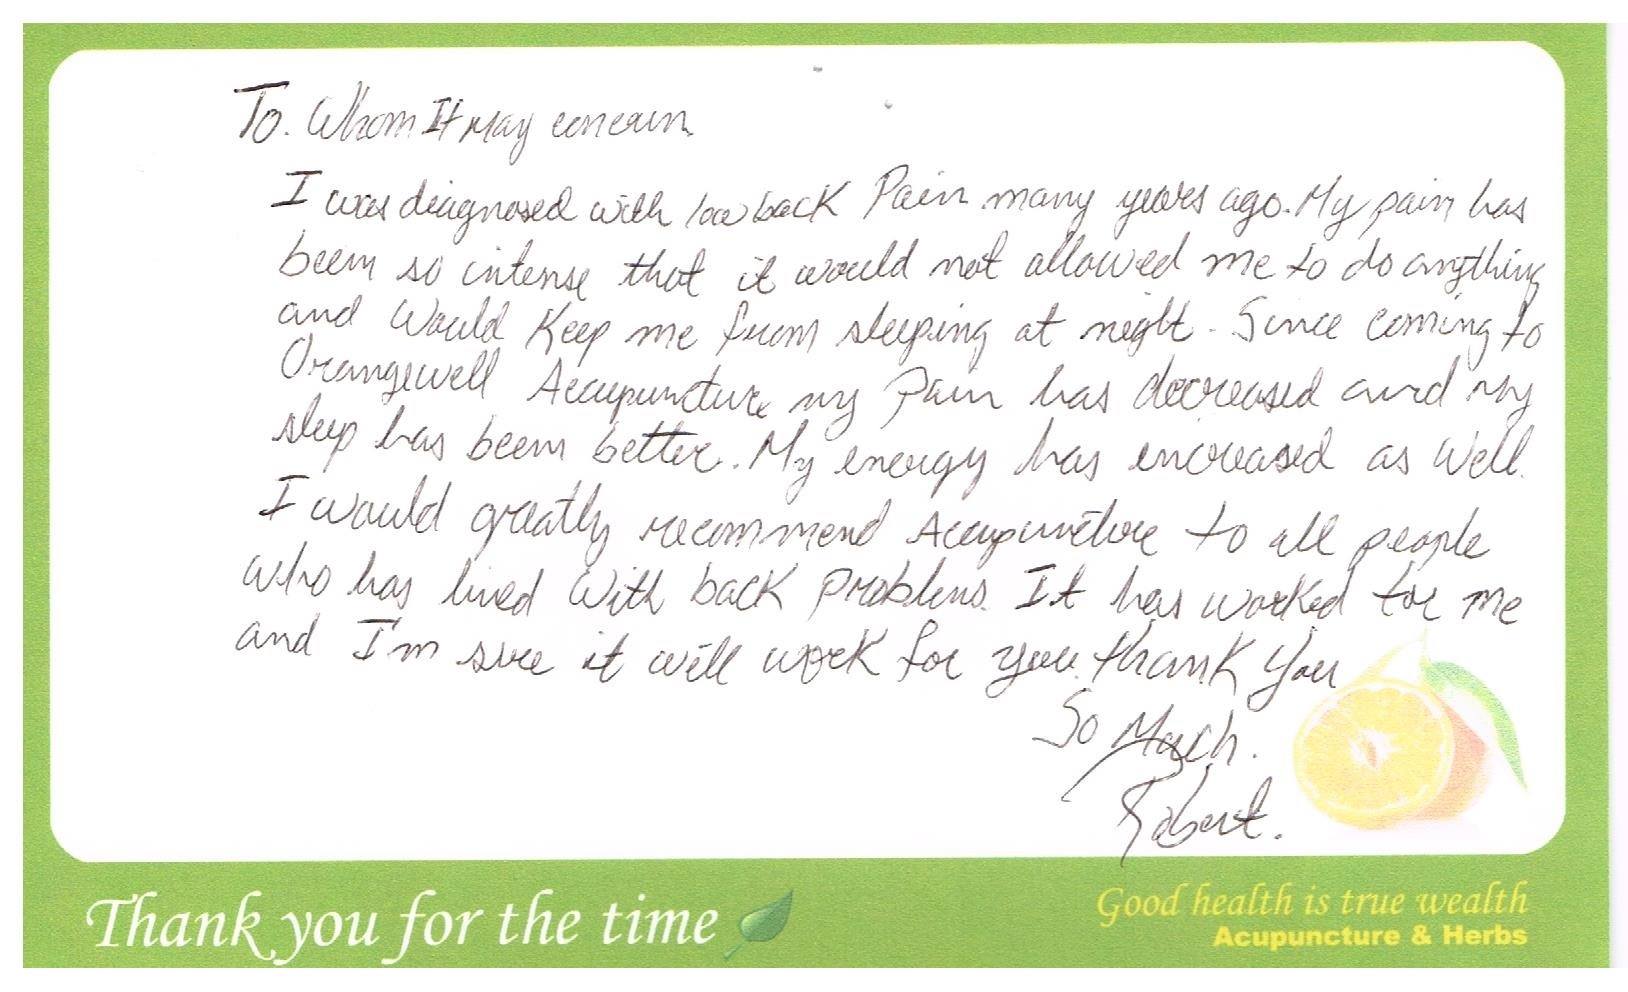 To. Whom It May concern
I was diagnosed with low back Pain many years ago. My pain has
been so intense that it would not allowed me to do anything
and Would Keep me from sleeping at night. Since coming to
Orangewell Accupuncture my Pain has decreased and my
sleep has been better. My energy has encreased as Well.
I would greatly recommend Accupuncture to all people
who has lived With back Problems. It has worked for me
and I'm sure it will work for you. thank You
So Much.
Robert.
Thank you for the time
Good health is true wealth
Acupuncture & Herbs